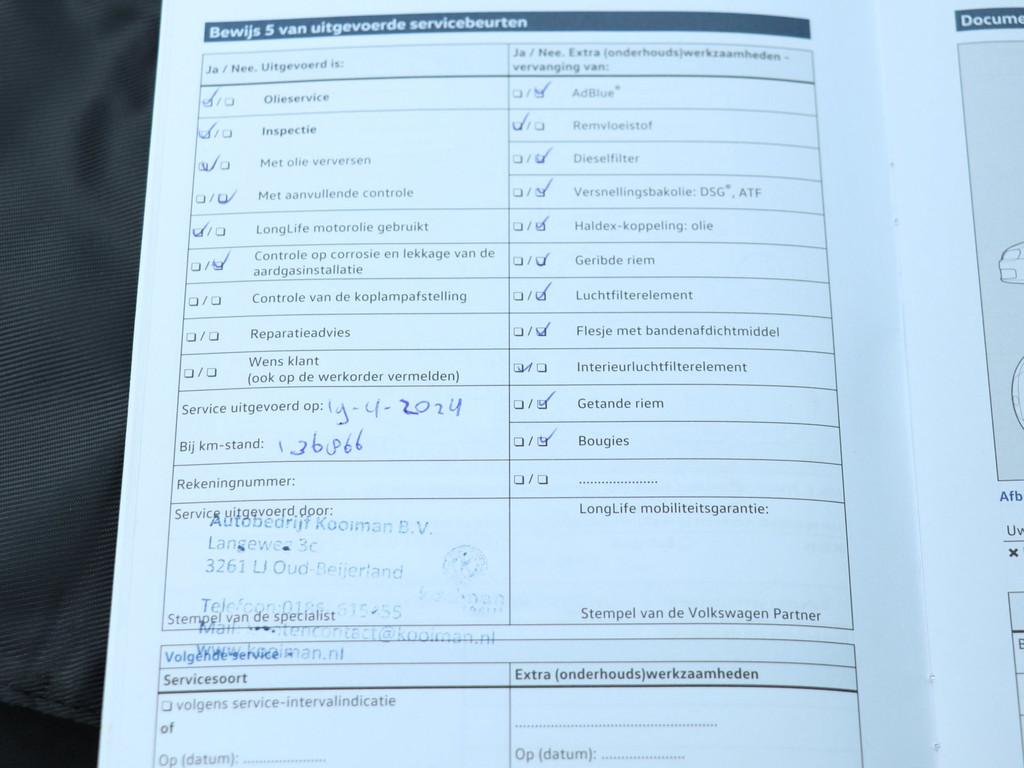 Bewijs 5 van uitgevoerde servicebeurten
Docume
Ja / Nee. Uitgevoerd is:
Olieservice
Inspectie
Met olie verversen
Met aanvullende controle
LongLife motorolie gebruikt
Controle op corrosie en lekkage van de
aardgasinstallatie
Controle van de koplampafstelling
Reparatieadvies
Wens klant
(ook op de werkorder vermelden)
Service uitgevoerd op: 19-4-2024
Bij km-stand: 136866
Rekeningnummer:
Ja / Nee. Extra (onderhouds)werkzaamheden -
vervanging van:
AdBlue®
Remvloeistof
Dieselfilter
Versnellingsbakolie: DSG®, ATF
Haldex-koppeling: olie
Geribde riem
Luchtfilterelement
Flesje met bandenafdichtmiddel
Interieurluchtfilterelement
Getande riem
Bougies
......................
Service uitgevoerd door:
Autobedrijf Kooiman B.V.
Langeweg 3c
3261 LJ Oud-Beijerland
Stempel van de specialist
www.kooiman.nl
LongLife mobiliteitsgarantie:
Stempel van de Volkswagen Partner
Volgende service
Servicesoort
volgens service-intervalindicatie
of
Op (datum): ......................
Extra (onderhouds)werkzaamheden
Op (datum): ......................
Afb
Uw